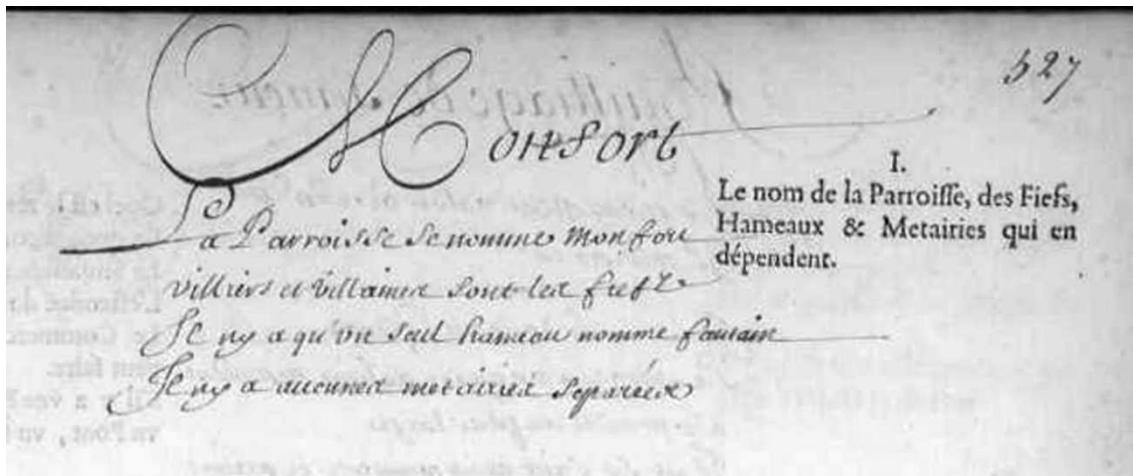 527
Monfort
I.
Le nom de la Parroisse, des Fiefs,
Hameaux & Metairies qui en
dépendent.
La Parroisse se nomme Monfort
villiers et villaines sont les fiefz
Il ny a qu'un seul hameau nomme fantain
Il ny a aucunes metairies separees